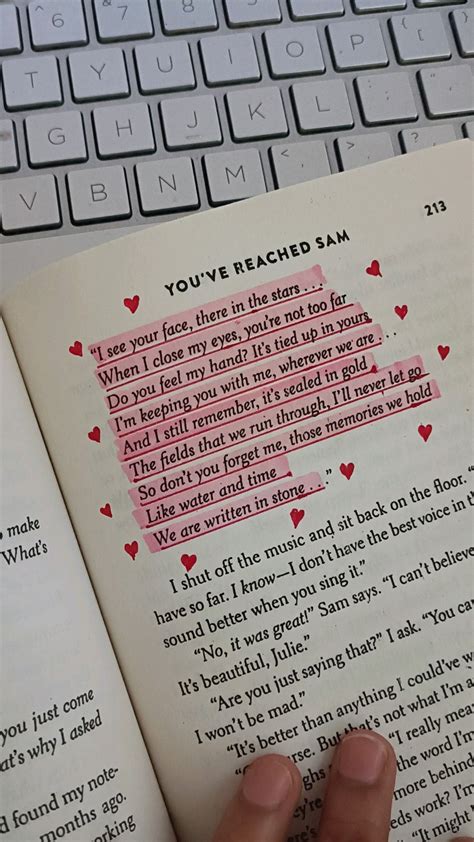 ^ 6 & 7 * 8 ( 9 )
T Y U I O P {
G H J K L : ; "
V B N M < , > . ? /
213
YOU'VE REACHED SAM
"I see your face, there in the stars . . .
When I close my eyes, you're not too far
Do you feel my hand? It's tied up in yours
I'm keeping you with me, wherever we are . . .
And I still remember, it's sealed in gold
The fields that we run through, I'll never let go
So don't you forget me, those memories we hold
Like water and time
We are written in stone . . ."
I shut off the music and sit back on the floor. "
have so far. I know—I don't have the best voice in
sound better when you sing it."
"No, it was great!" Sam says. "I can't believe
It's beautiful, Julie."
"Are you just saying that?" I ask. "You ca
I won't be mad."
"It's better than anything I could've w
rse. But that's not what I'm a
ghs "I really mea
they're the word I'm
more behind
eds work? I'm
"It might
make
What's
you just come
at's why I asked
d found my note-
months ago.
orking